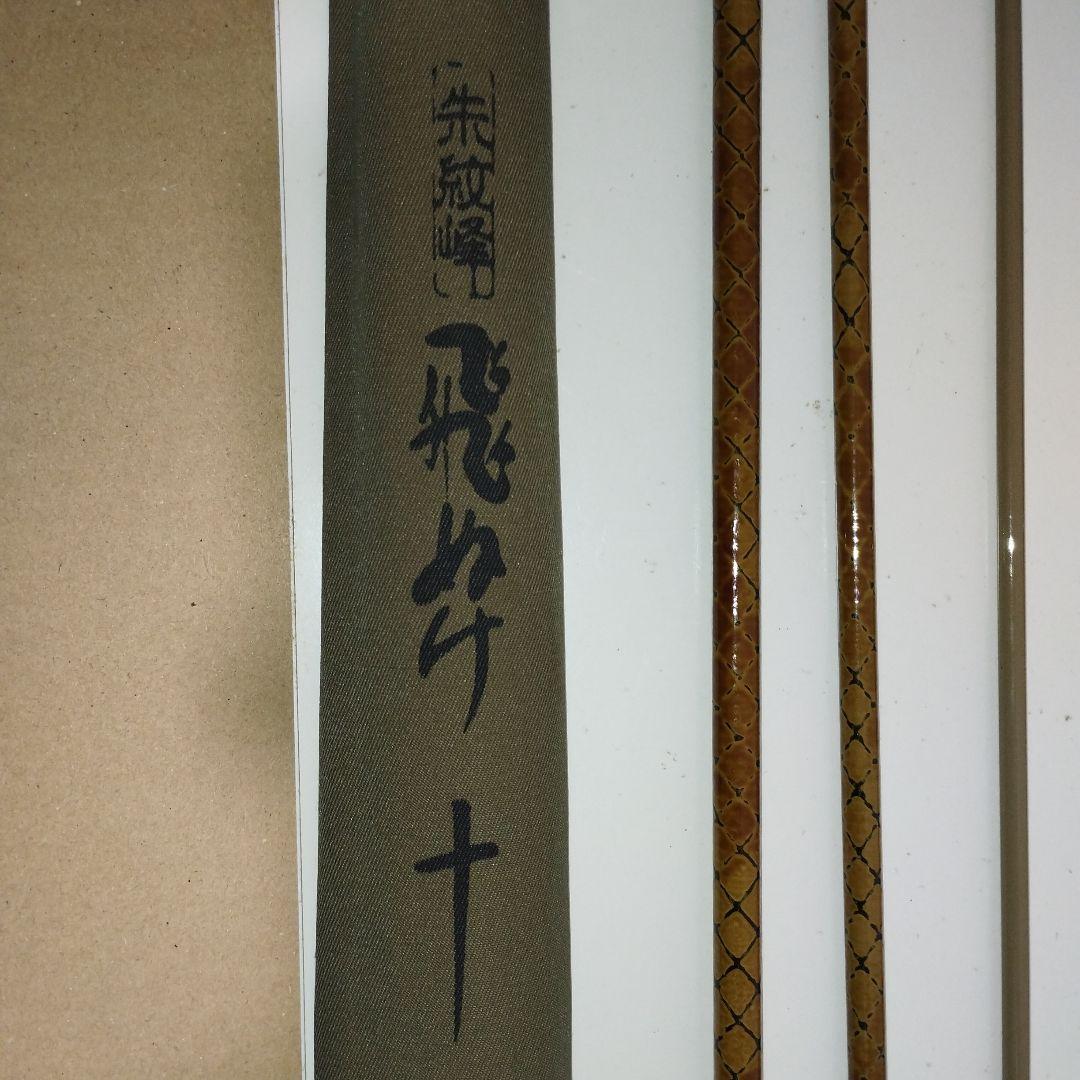 朱紋峰
飛ぬけ
十